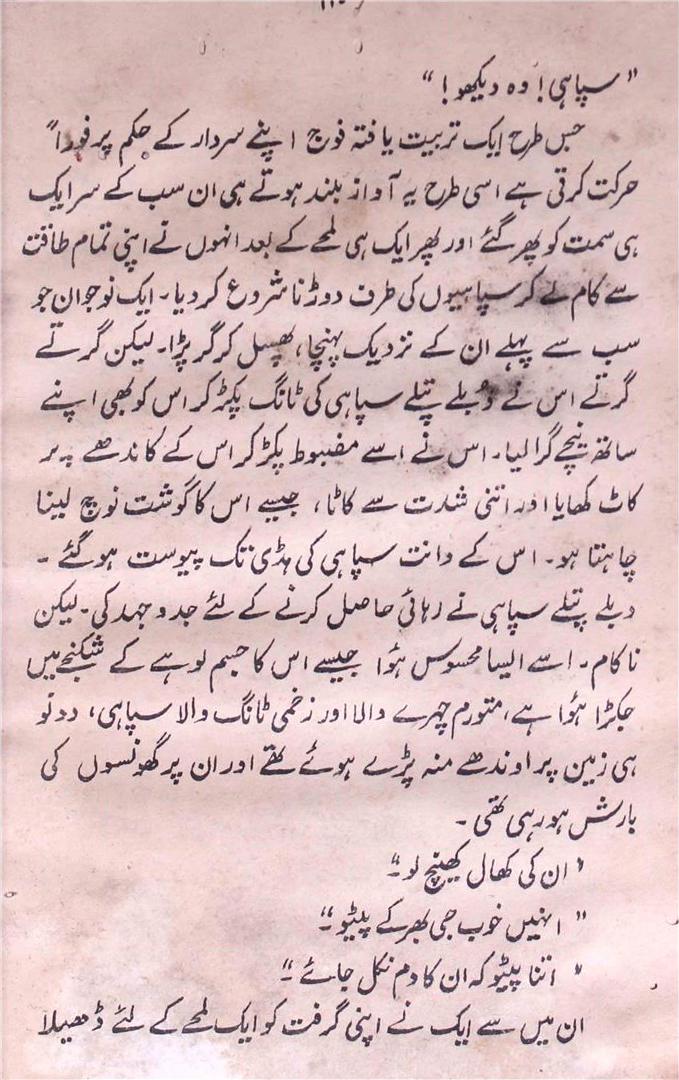 "سپاہی! وہ دیکھو!"
جس طرح ایک تربیت یافتہ فوج اپنے سردار کے حکم پر فوراً
حرکت کرتی ہے اسی طرح یہ آواز بلند ہوتے ہی ان سب کے سر ایک
ہی سمت کو پھر گئے اور پھر ایک ہی لمحے کے بعد انہوں نے اپنی تمام طاقت
سے کام لے کر سپاہیوں کی طرف دوڑنا شروع کر دیا۔ ایک نوجوان جو
سب سے پہلے ان کے نزدیک پہنچا، پھسل کر گر پڑا۔ لیکن گرتے
گرتے اس نے دُبلے پتلے سپاہی کی ٹانگ پکڑ کر اس کو بھی اپنے
ساتھ نیچے گرا لیا۔ اس نے اسے مضبوط پکڑ کر اس کے کاندھے پر
کاٹ کھایا اور اتنی شدت سے کاٹا، جیسے اس کا گوشت نوچ لینا
چاہتا ہو۔ اس کے دانت سپاہی کی ہڈی تک پیوست ہو گئے۔
دبلے پتلے سپاہی نے رہائی حاصل کرنے کے لئے جدوجہد کی۔ لیکن
ناکام۔ اسے ایسا محسوس ہوا جیسے اس کا جسم لوہے کے شکنجے میں
جکڑا ہوا ہے، متورم چہرے والا اور زخمی ٹانگ والا سپاہی، دونو
ہی زمین پر اوندھے منہ پڑے ہوئے تھے اور ان پر گھونسوں کی
بارش ہو رہی تھی۔
"ان کی کھال کھینچ لو۔"
"انہیں خوب جی بھر کے پیٹو۔"
"اتنا پیٹو کہ ان کا دم نکل جائے۔"
ان میں سے ایک نے اپنی گرفت کو ایک لمحے کے لئے ڈھیلا